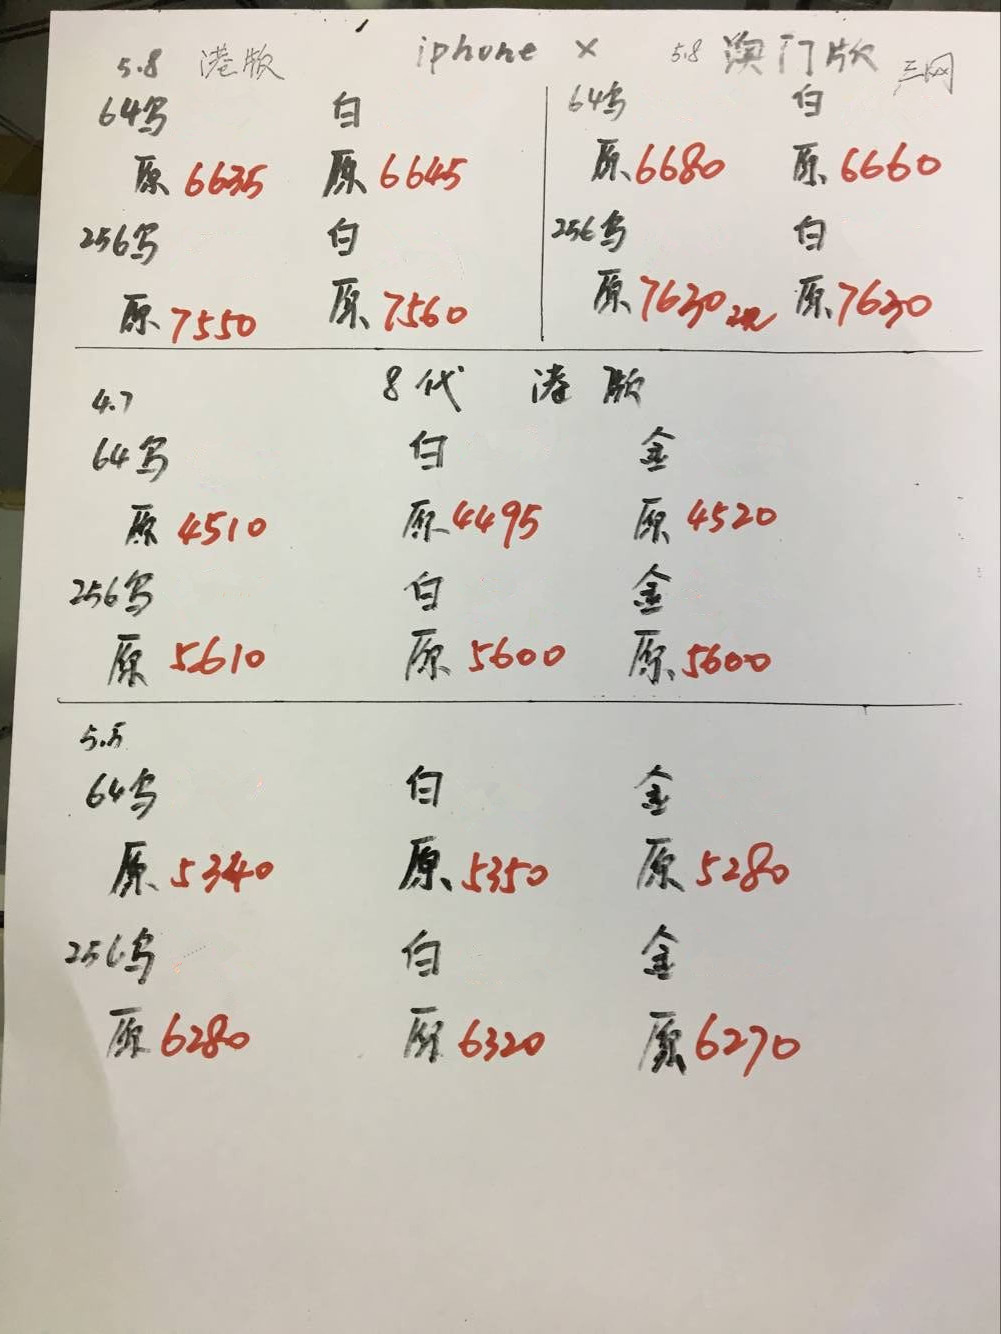 iphone X
5.8 港版 5.8 澳门版 三网
64乌 白 64乌 白
原 6635 原 6645 原 6680 原 6660
256乌 白 256乌 白
原 7550 原 7560 原 7630 原 7630
4.7 8代 港版
64乌 白 金
原 4510 原 4495 原 4520
256乌 白 金
原 5610 原 5600 原 5600
5.5
64乌 白 金
原 5340 原 5350 原 5280
256乌 白 金
原 6280 原 6320 原 6270